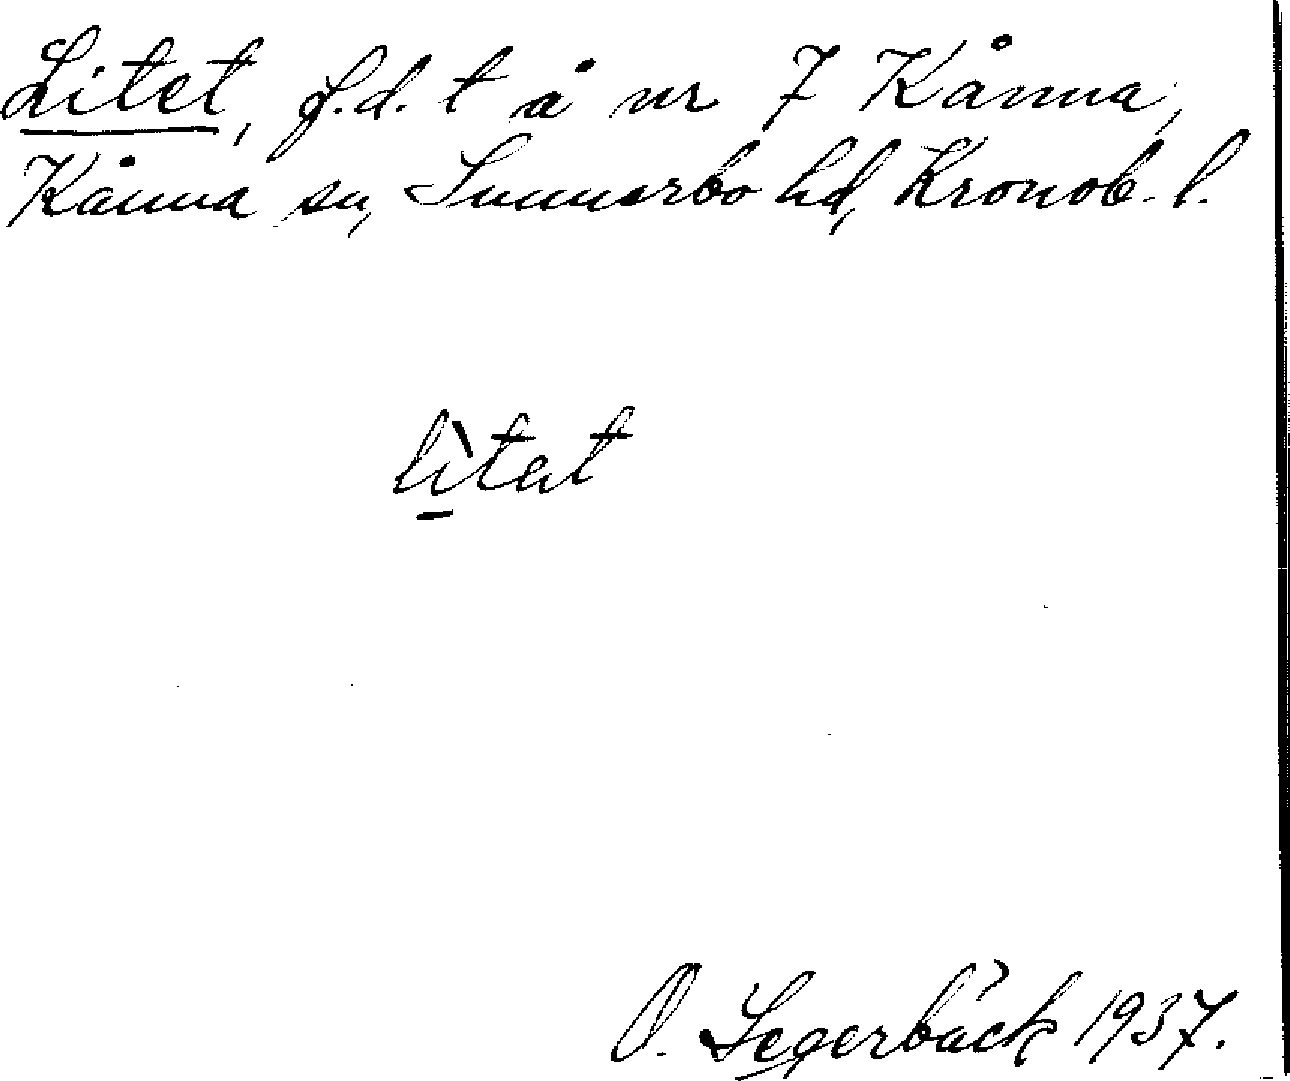 Litet, f.d. t å nr 7 Kånna,
Kånna sn, Sunnerbo hd, Kronob. l.
lìtat
O. Segerbäck 1937.